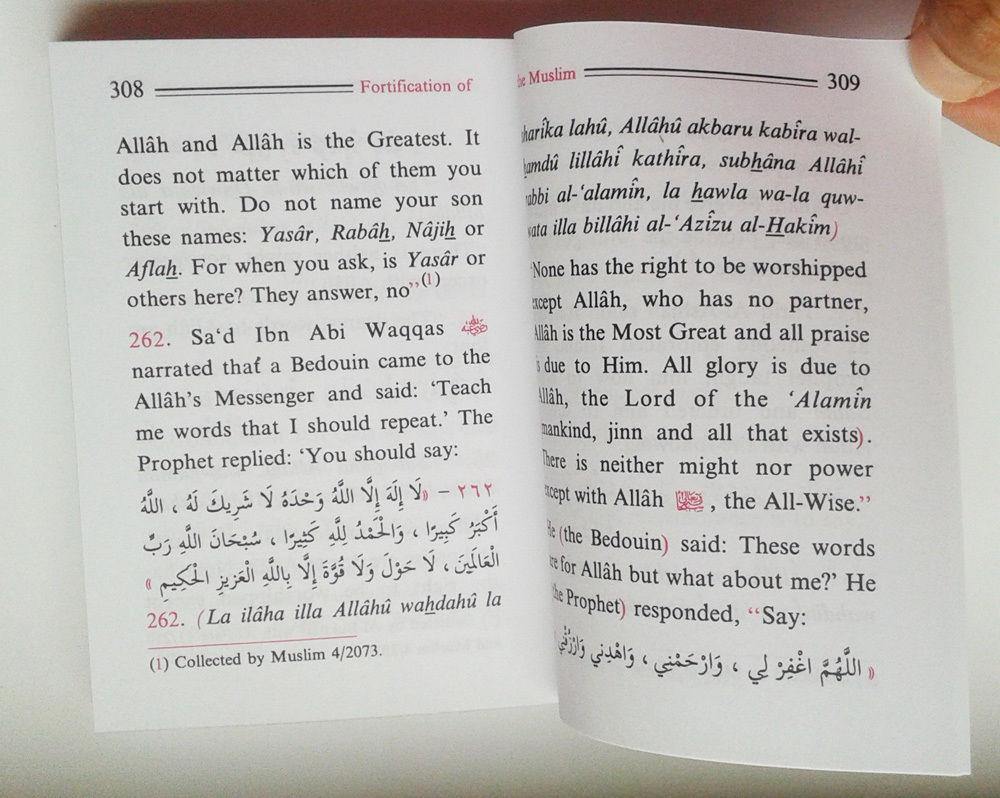 308
Fortification of
Allâh and Allâh is the Greatest. It
does not matter which of them you
start with. Do not name your son
these names: Yasâr, Rabâh, Nâjih or
Aflah. For when you ask, is Yasâr or
others here? They answer, no”(1)
262. Sa‘d Ibn Abi Waqqas
narrated that a Bedouin came to the
Allâh’s Messenger and said: ‘Teach
me words that I should repeat.’ The
Prophet replied: ‘You should say:
٢٦٢ – «لَا إِلَهَ إِلَّا اللَّهُ وَحْدَهُ لَا شَرِيكَ لَهُ ، اللَّهُ
أَكْبَرُ كَبِيرًا ، وَالْحَمْدُ لِلَّهِ كَثِيرًا ، سُبْحَانَ اللَّهِ رَبِّ
الْعَالَمِينَ ، لَا حَوْلَ وَلَا قُوَّةَ إِلَّا بِاللَّهِ الْعَزِيزِ الْحَكِيمِ»
262. (La ilâha illa Allâhû wahdahû la
(1) Collected by Muslim 4/2073.
the Muslim
309
lahû, Allâhû akbaru kabîra wal-
lillâhî kathîra, subhâna Allâhî
al-‘alamîn, la hawla wa-la quw-
illa billâhi al-‘Azîzu al-Hakîm)
‘None has the right to be worshipped
except Allâh, who has no partner,
Allâh is the Most Great and all praise
is due to Him. All glory is due to
Allâh, the Lord of the ‘Alamîn
mankind, jinn and all that exists).
There is neither might nor power
except with Allâh , the All-Wise.”
He (the Bedouin) said: These words
for Allâh but what about me?’ He
the Prophet) responded, “Say:
«اللَّهُمَّ اغْفِرْ لِي ، وَارْحَمْنِي ، وَاهْدِنِي وَارْزُقْنِي